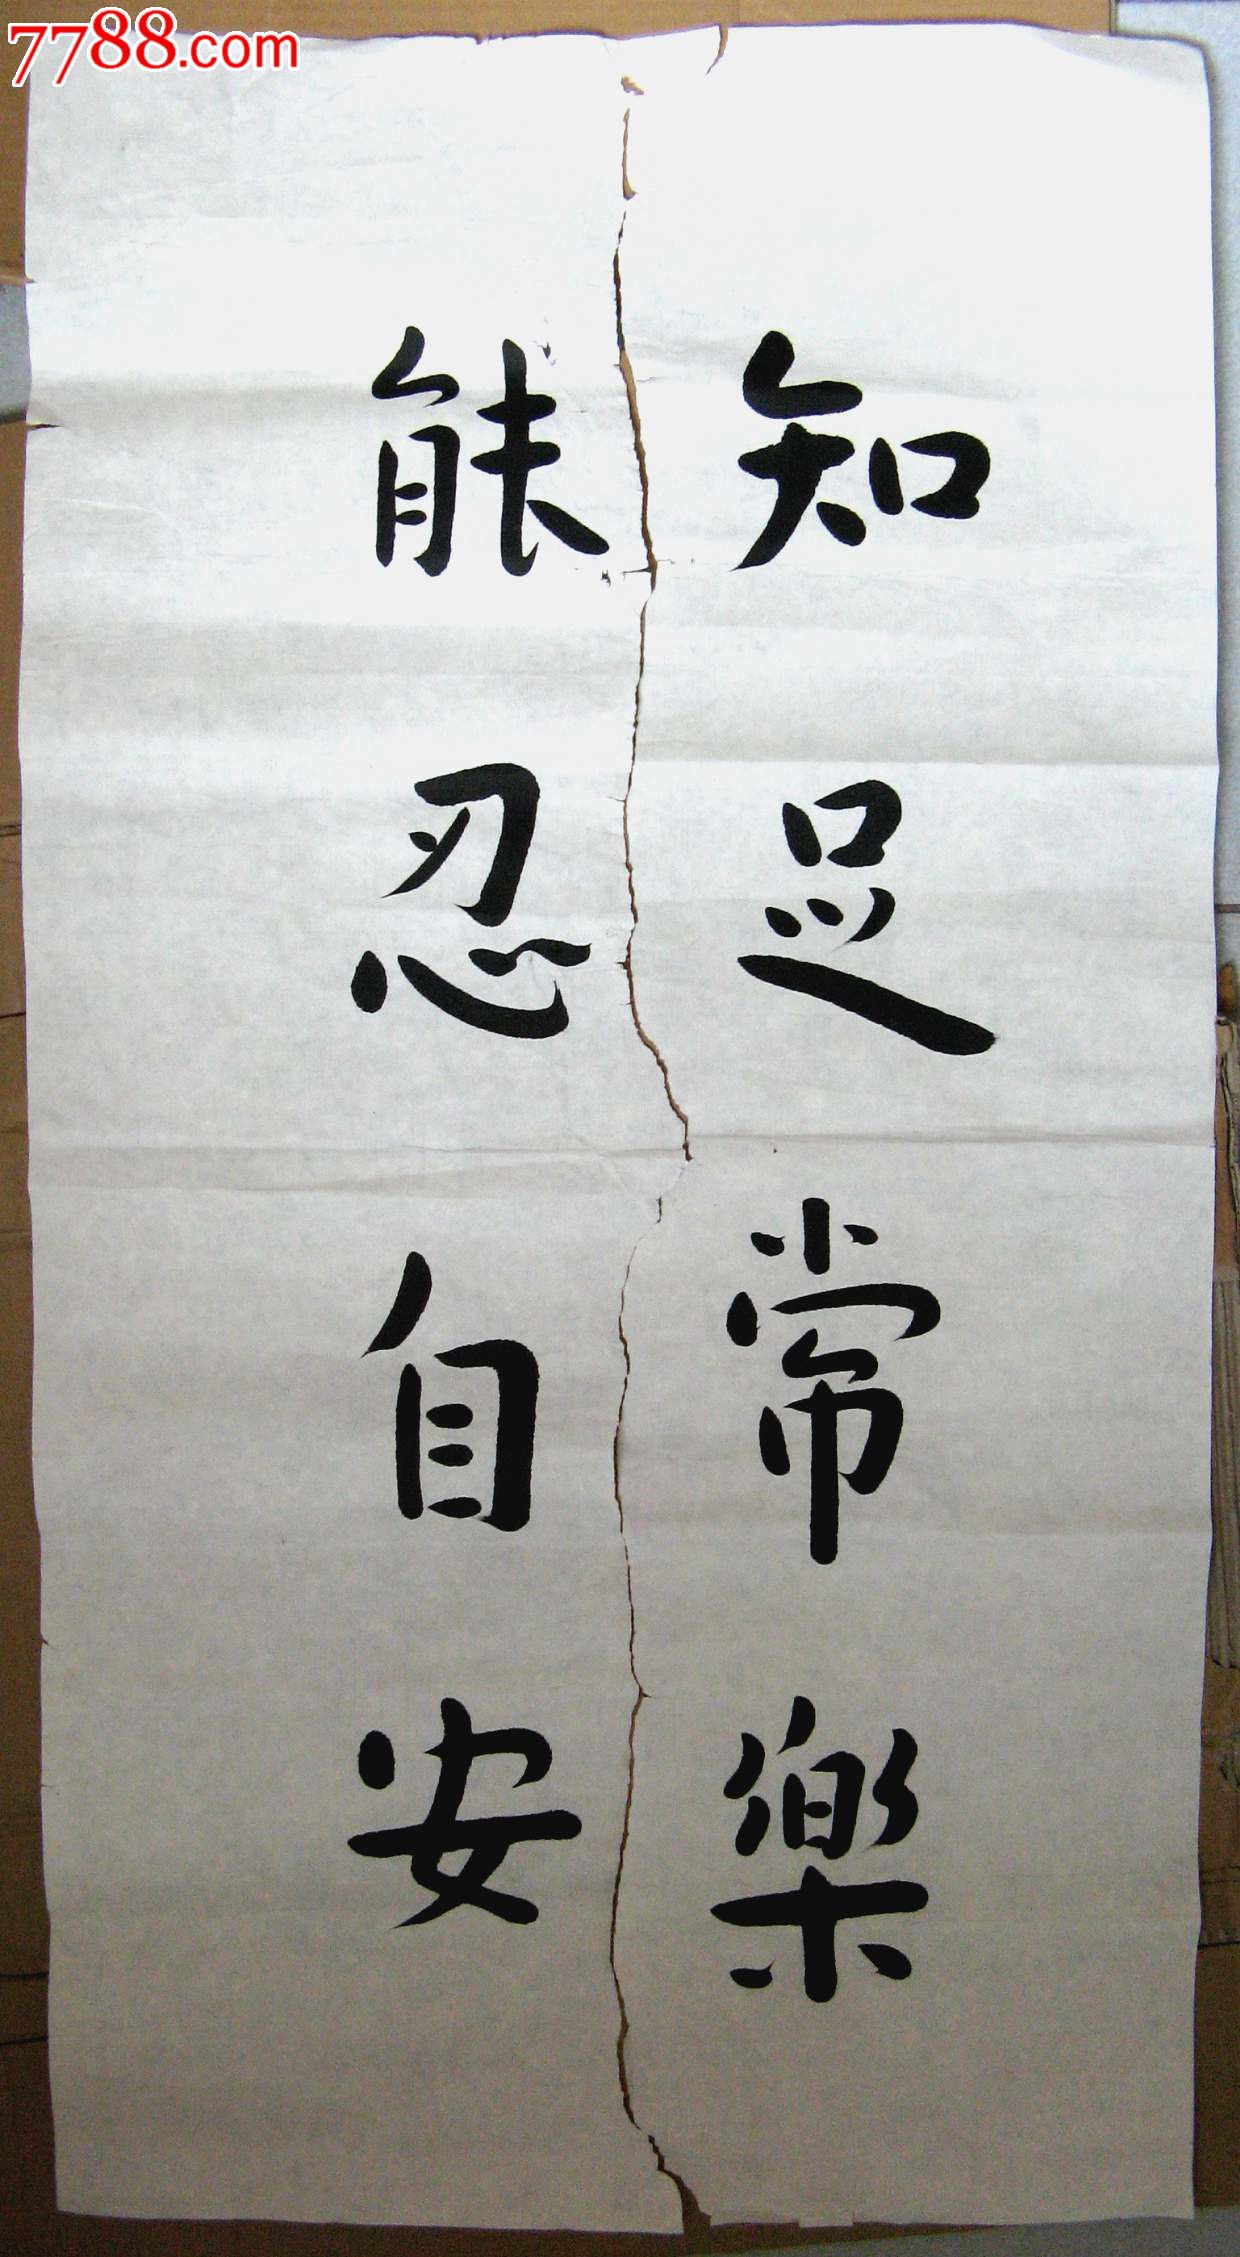 7788.com
知足常樂
能忍自安